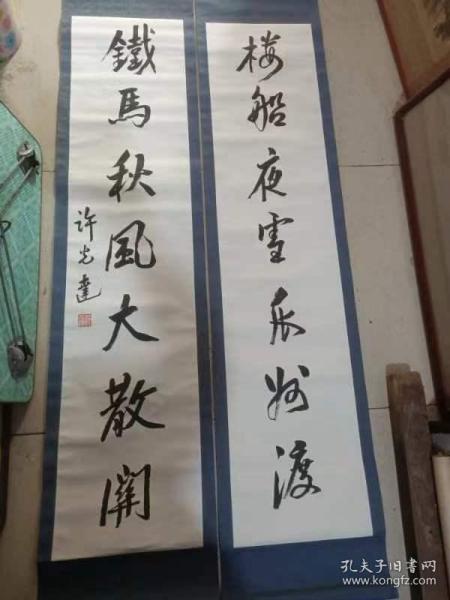 楼船夜雪瓜州渡
鐵馬秋風大散關
许光達
孔夫子旧书网
www.kongfz.com